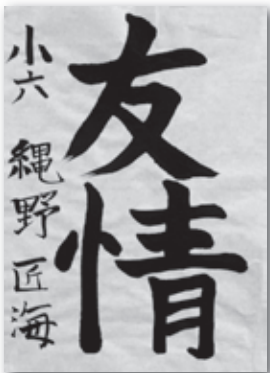 友情
小六 縄野匠海